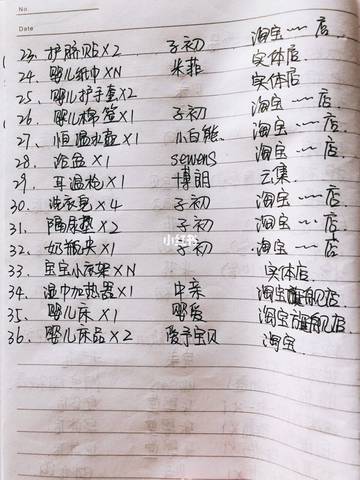 No.
Date
23. 护脐贴×2 子初 淘宝……店
24. 婴儿纸巾×N 米菲 实体店
25、婴儿护手套×2 实体店
26、婴儿棉签×1 子初 淘宝……店
27、恒温水壶×1 小白熊 淘宝……店
28、浴盆×1 sewens 淘宝……店
29、耳温枪×1 博朗 云集
30. 洗衣皂×4 子初 淘宝……店
31. 隔尿垫×2 子初 淘宝……店
32. 奶瓶夹×1 子初 淘宝……店
33. 宝宝小衣架×N 实体店
34. 湿巾加热器×1 中亲 淘宝旗舰店
35. 婴儿床×1 婴爱 淘宝旗舰店
36. 婴儿床品×2 爱予宝贝 淘宝
小红书